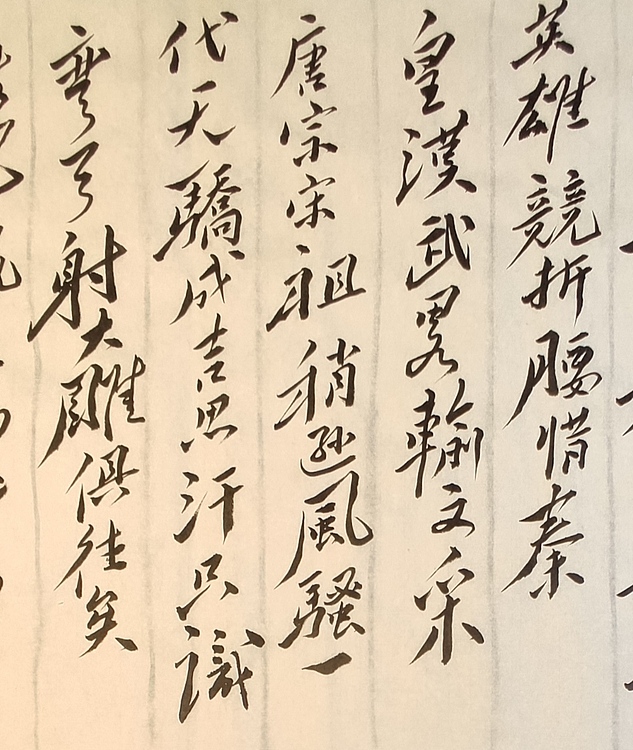 英雄競折腰惜秦
皇漢武畧輸文采
唐宗宋祖稍遜風騷一
代天驕成吉思汗只識
彎弓射大雕俱往矣